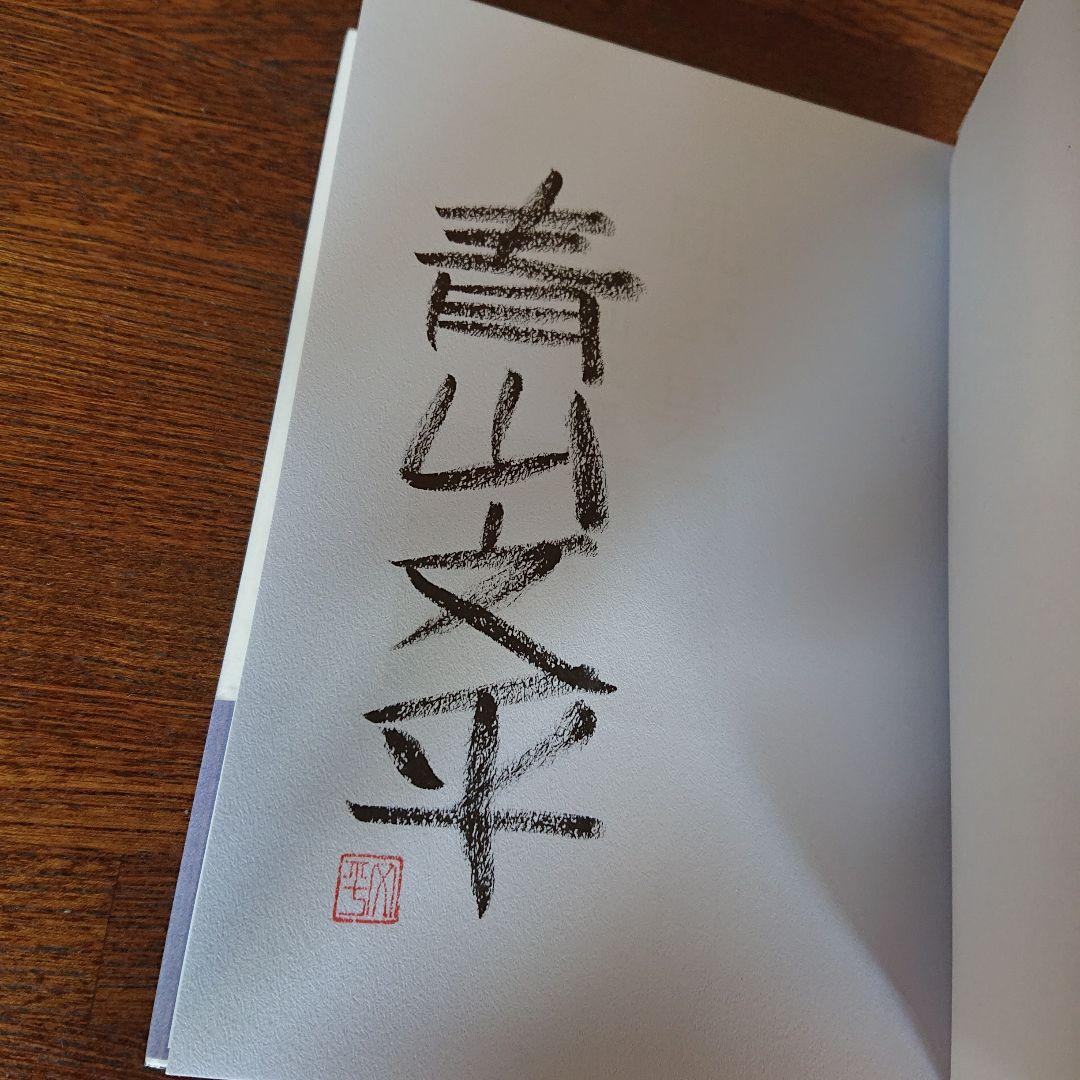 青山文平